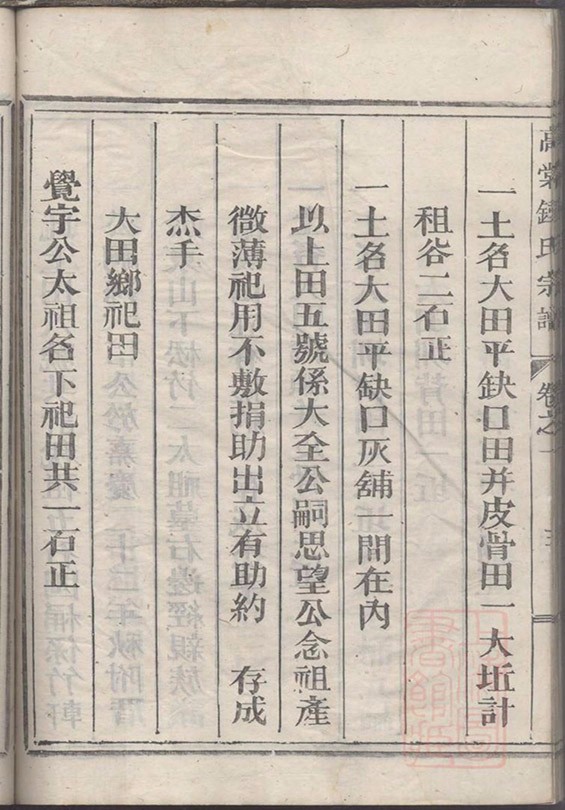 高棠鍾氏宗譜 卷之一
一土名大田平缺口田并皮骨田一大坵計
租谷二石正
一土名大田平缺口灰舖一間在內
一以上田五號係大全公嗣思望公念祖產
微薄祀用不敷捐助出立有助約 存成
杰手
大田鄉祀田
覺宇公太祖名下祀田共一石正